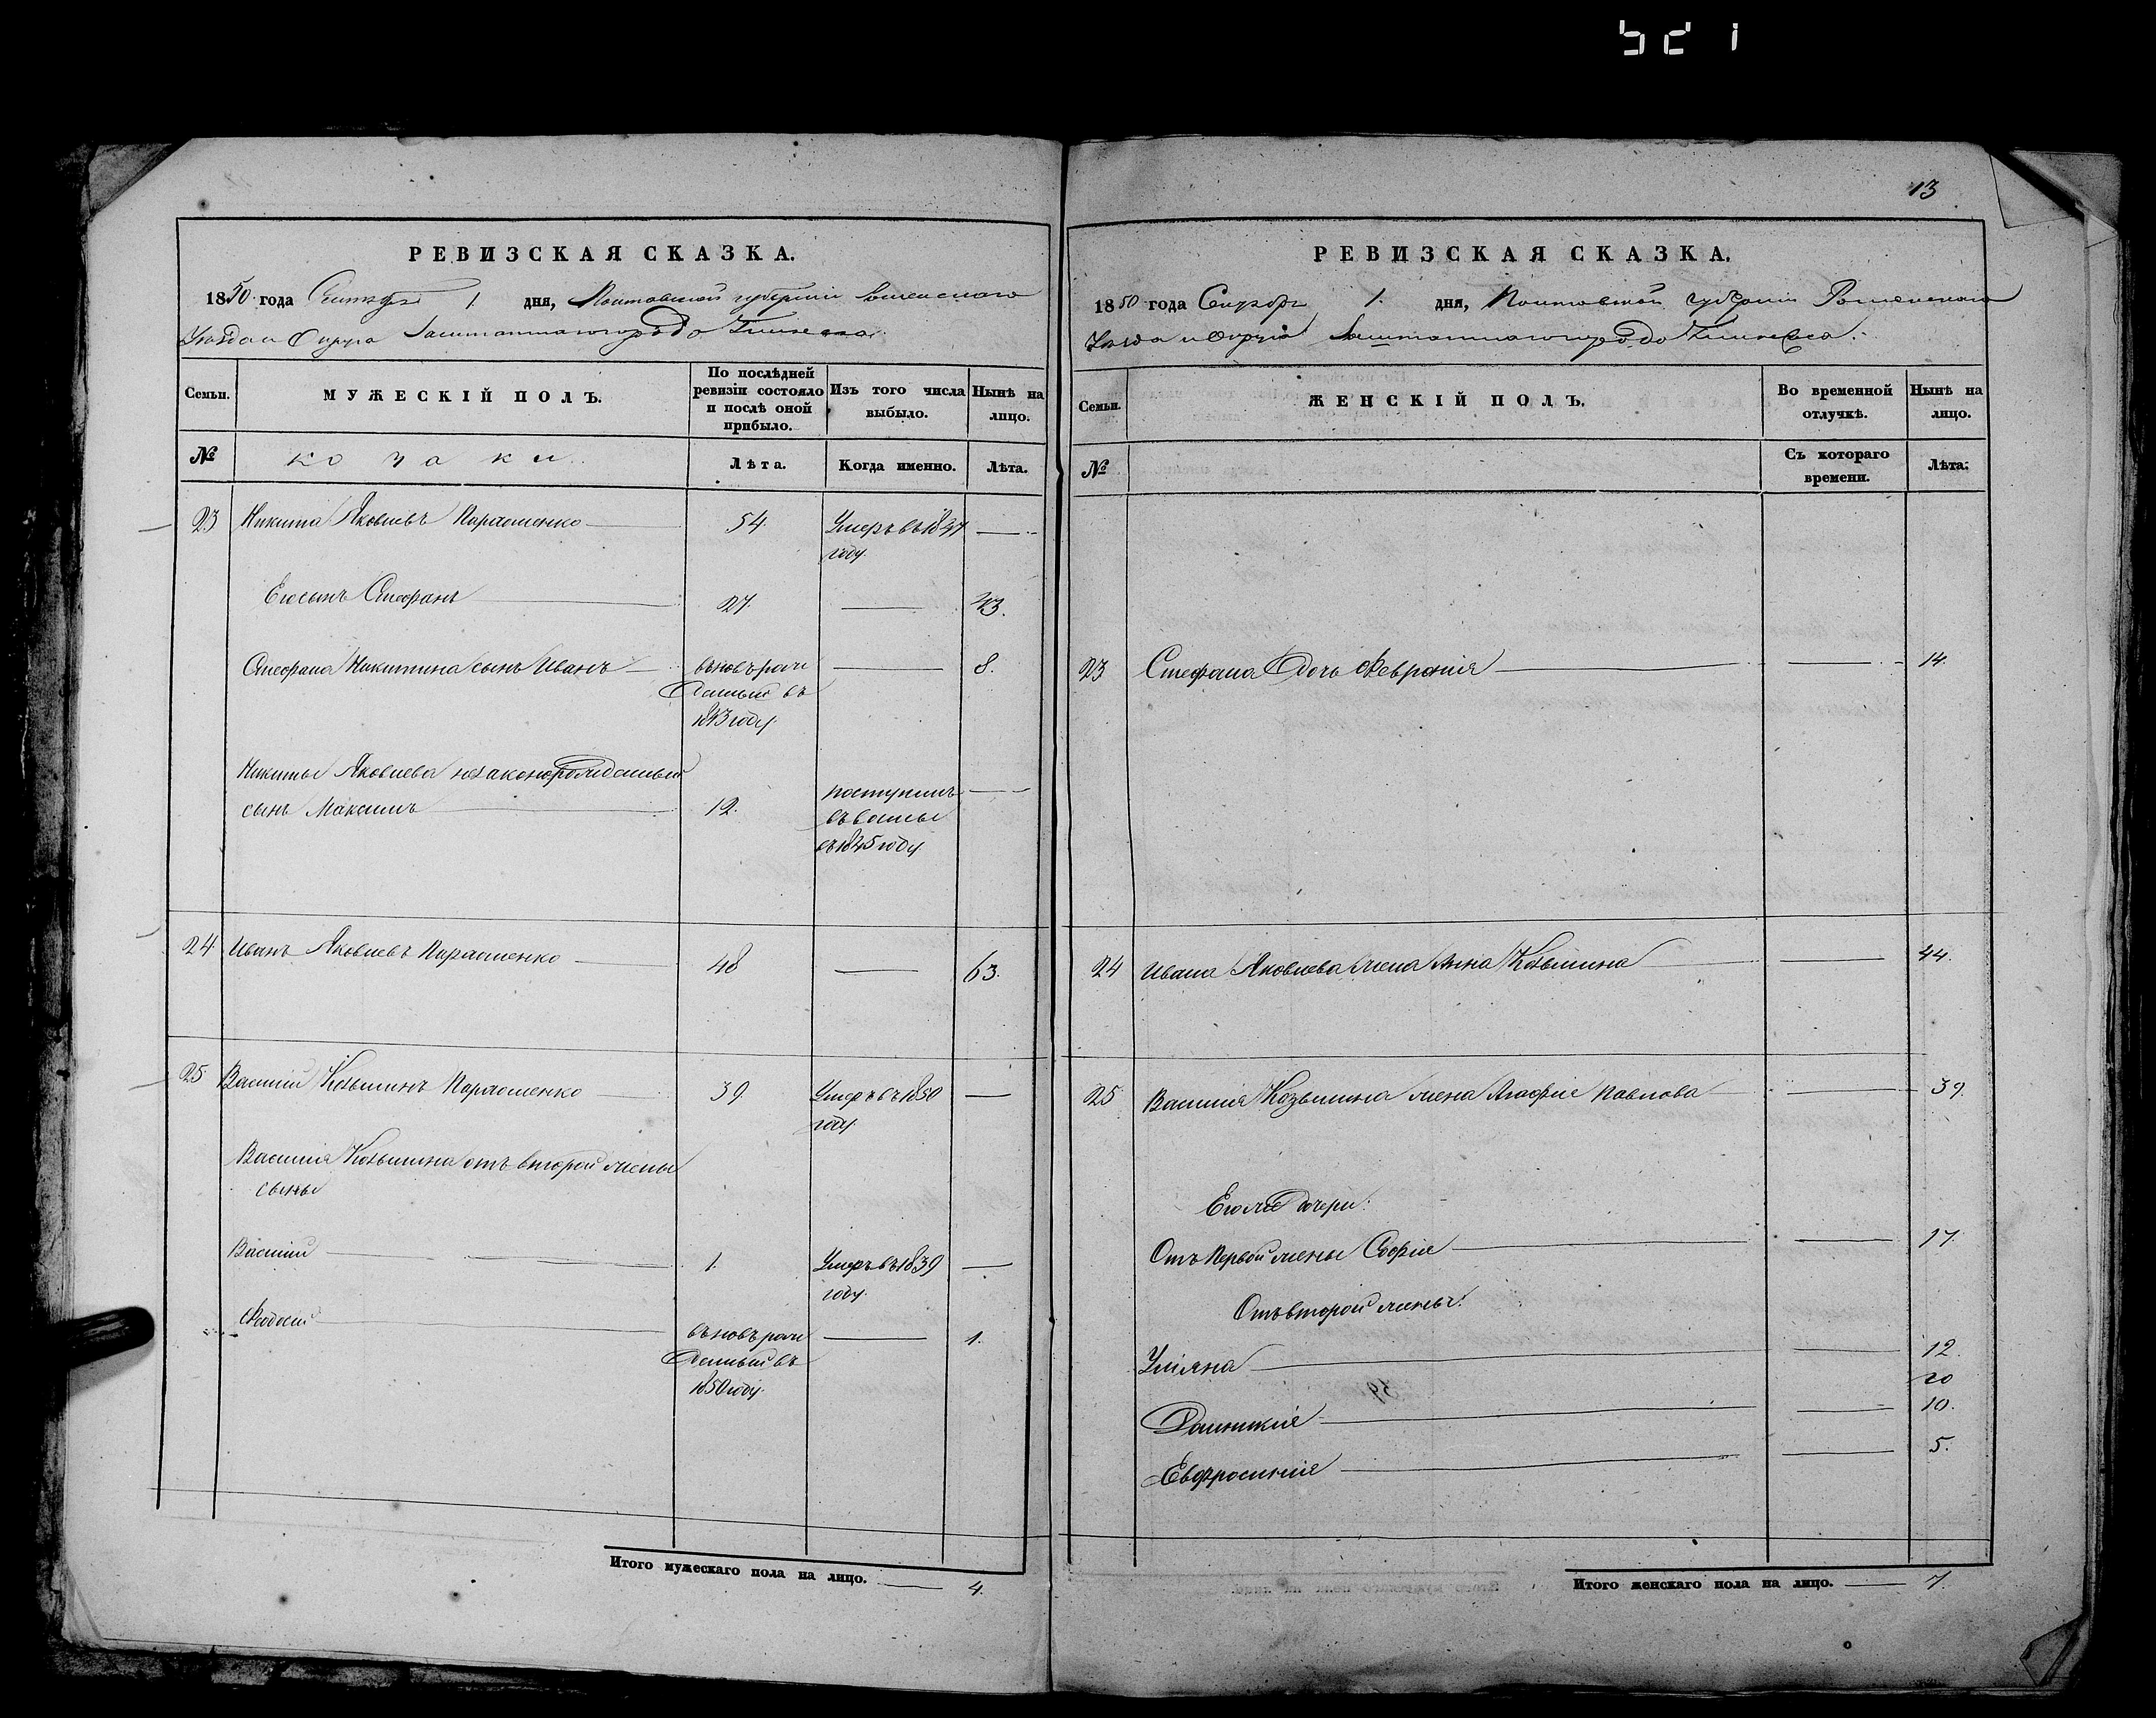 13
РЕВИЗСКАЯ СКАЗКА.
1850 года Сентября 1. дня, Полтавской губернии Роменского
Уезда и Округа Заштатнаго города Глинска.
Семьи.
МУЖЕСКІЙ ПОЛЪ.
По послѣдней ревизіи состояло и послѣ оной прибыло.
Изъ того числа выбыло.
Нынѣ на лицо.
№
козаки
Лѣта.
Когда именно.
Лѣта.
23 Никита Яковлевъ Пархоменко 54 Умеръ въ 1837
году.
Его сынъ Стефанъ 27. 43.
Стефана Никитина сынъ Иванъ вновь рож 8.
денный въ
1843 году.
Никиты Яковлева незаконорожденный
сынъ Максимъ 12. поступилъ
въ
въ 1845 году
24. Иванъ Яковлевъ Пархоменко 48 63.
25 Василий Козьминъ Пархоменко 39. Умеръ въ 1850
году.
Василия Козьмина отъ второй жены
сыны
Василий 1. Умеръ въ 1839
году.
Феодосий вновь рож 1.
денный въ
1850 году.
Итого мужескаго пола на лицо. 4.
РЕВИЗСКАЯ СКАЗКА.
1850 года Сентября 1. дня, Полтавской губернии Роменского
Уезда и Округа Заштатнаго города Глинска.
Семьи.
ЖЕНСКІЙ ПОЛЪ.
Во временной отлучкѣ.
Нынѣ на лицо.
№
Съ котораго времени.
Лѣта.
23 Стефана дочь Феврония 14.
24 Ивана Яковлева жена Анна Козьмина 44.
25 Василия Козьмина жена Агафия Павлова 39.
Его же дочери:
Отъ первой жены София 17.
Отъ второй жены:
Улияна 12.
Домникия 10.
Евфросиния 5.
Итого женскаго пола на лицо. 7.